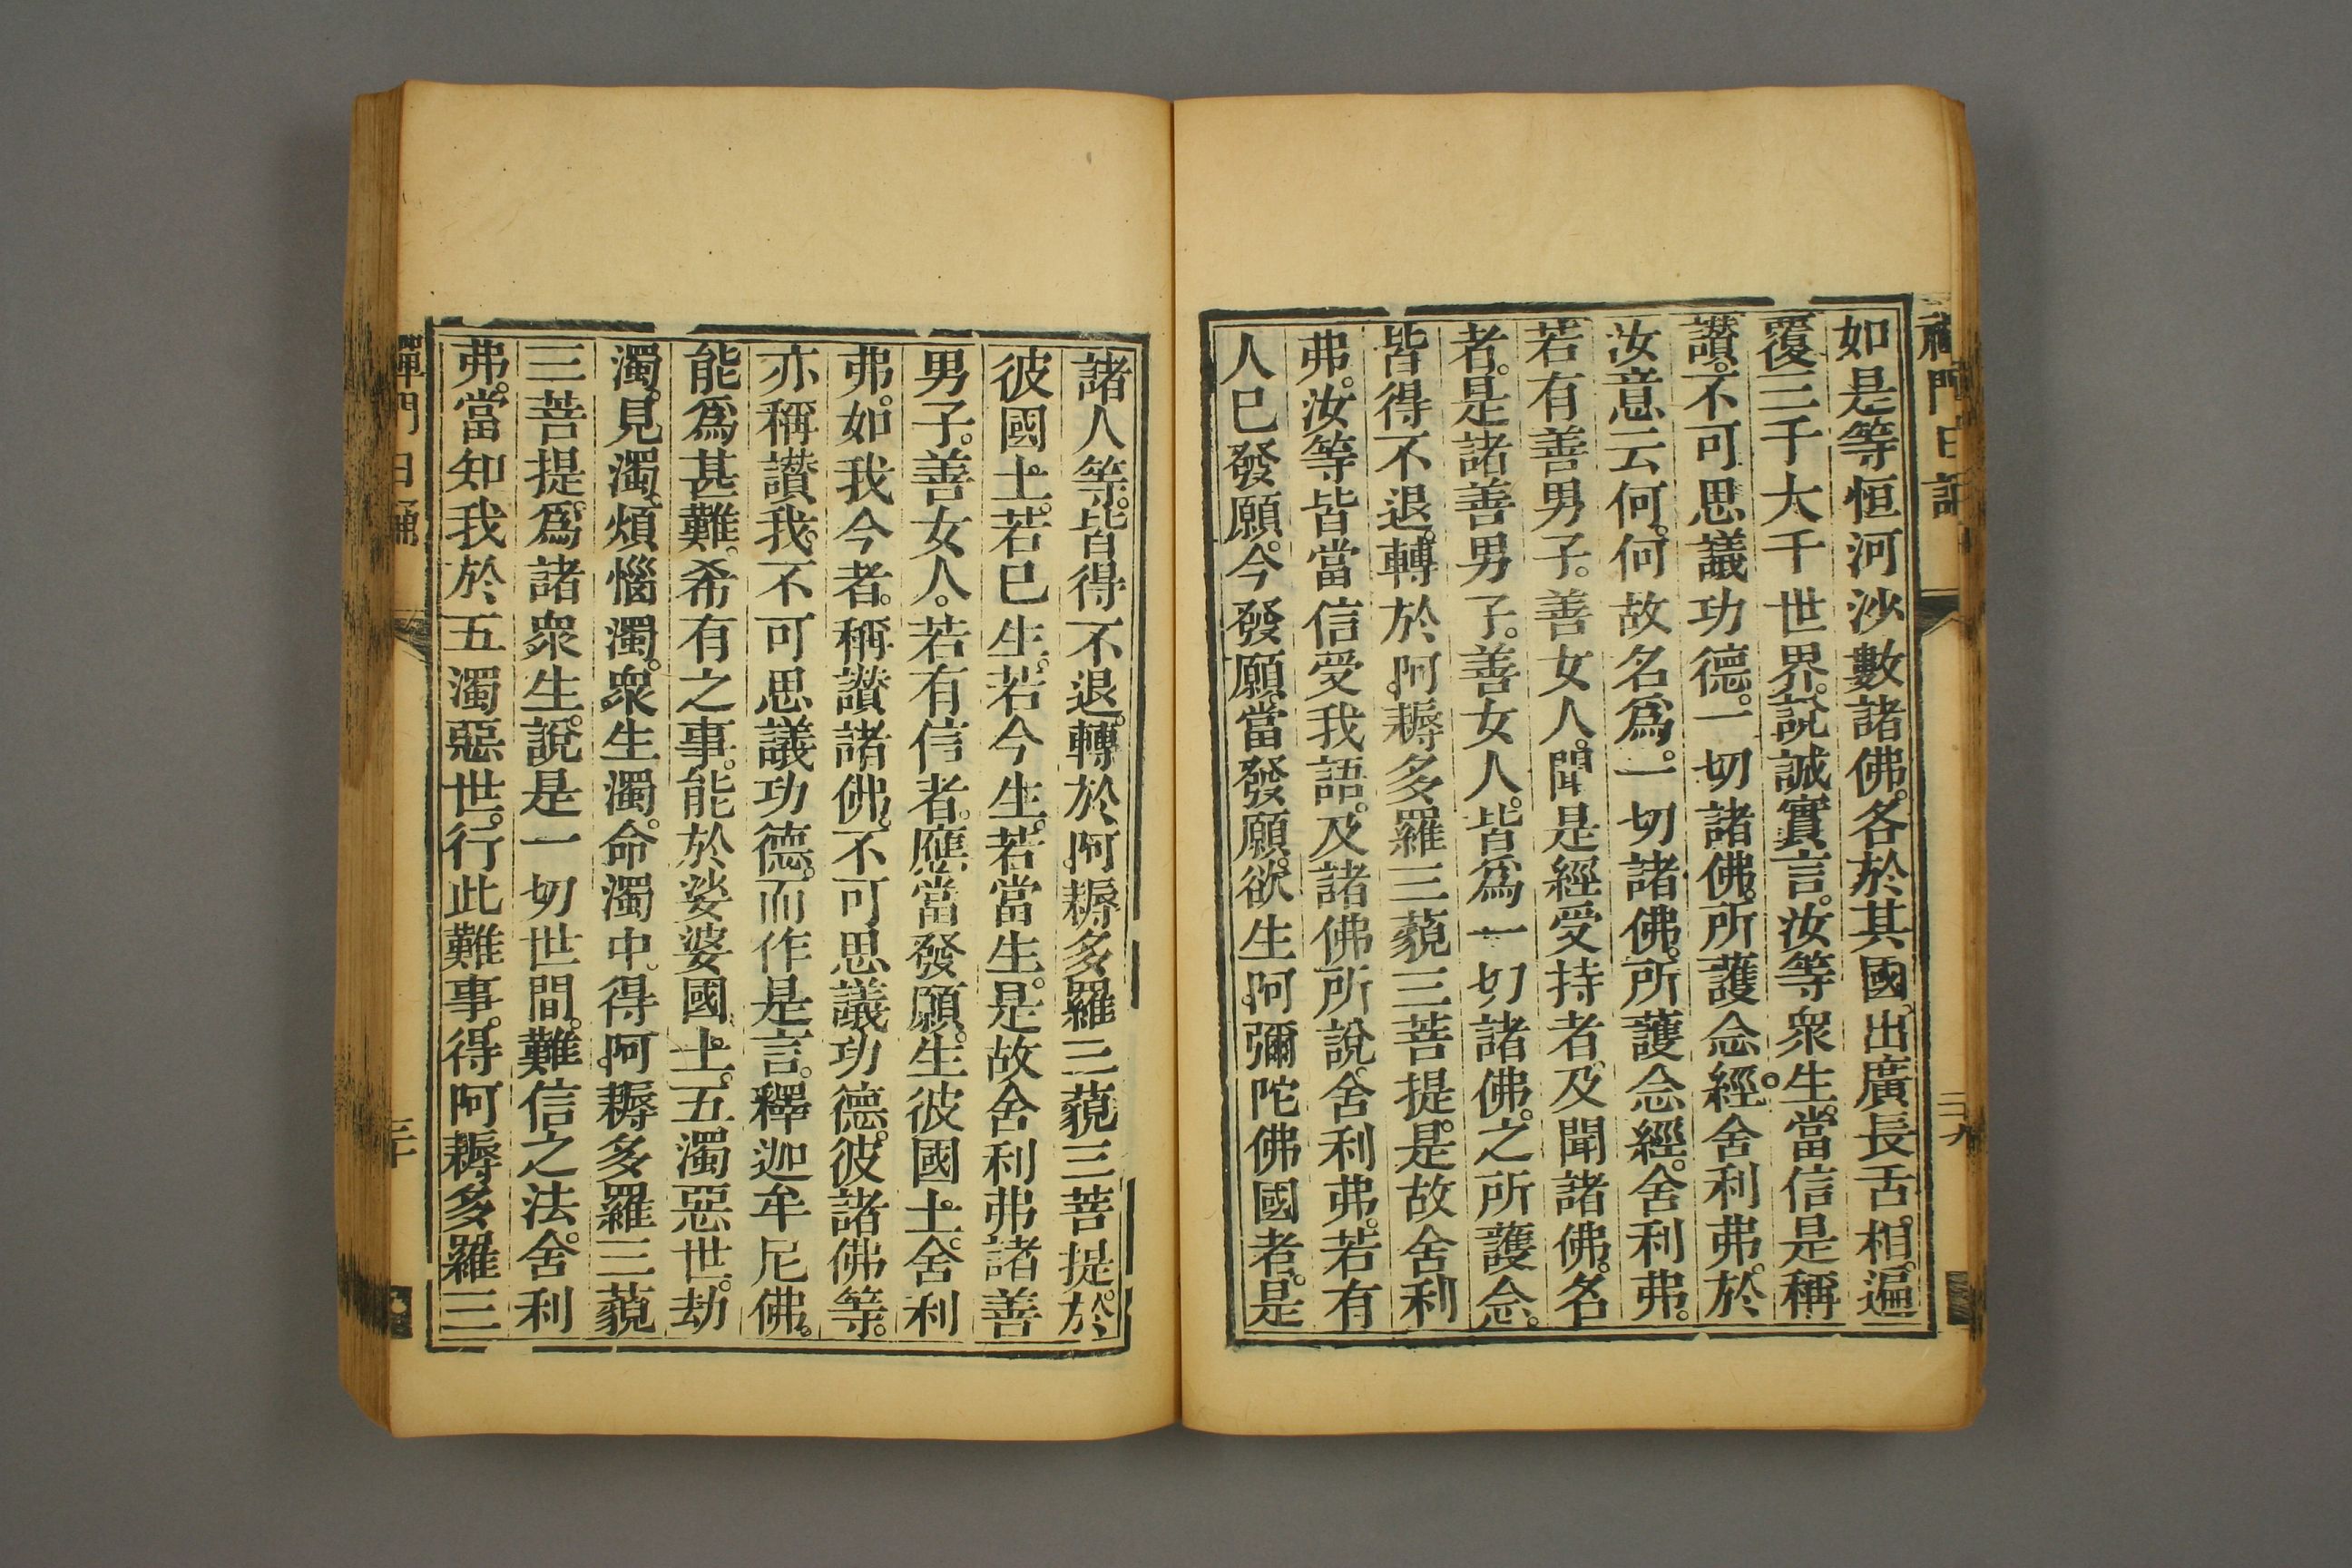 禪門日誦
二九
如是等恒河沙數諸佛。各於其國。出廣長舌相。遍
覆三千大千世界。說誠實言。汝等衆生。當信是稱
讚。不可思議功德。一切諸佛。所護念經。舍利弗。於
汝意云何。何故名爲。一切諸佛。所護念經。舍利弗。
若有善男子。善女人。聞是經受持者。及聞諸佛。名
者。是諸善男子。善女人。皆爲一切諸佛。之所護念。
皆得不退。轉於阿耨多羅三藐三菩提。是故舍利
弗。汝等皆當信受我語。及諸佛所說。舍利弗。若有
人已發願。今發願。當發願。欲生阿彌陀佛國者。是
諸人等。皆得不退。轉於阿耨多羅三藐三菩提。於
彼國土。若已生。若今生。若當生。是故舍利弗諸善
男子。善女人。若有信者。應當發願。生彼國土。舍利
弗。如我今者。稱讚諸佛。不可思議功德。彼諸佛等。
亦稱讚我。不可思議功德。而作是言。釋迦牟尼佛。
能爲甚難。希有之事。能於娑婆國土。五濁惡世。劫
濁。見濁。煩惱濁。衆生濁。命濁中。得阿耨多羅三藐
三菩提。爲諸衆生。說是一切世間。難信之法。舍利
弗。當知我於五濁惡世。行此難事。得阿耨多羅三
禪門日誦
三十